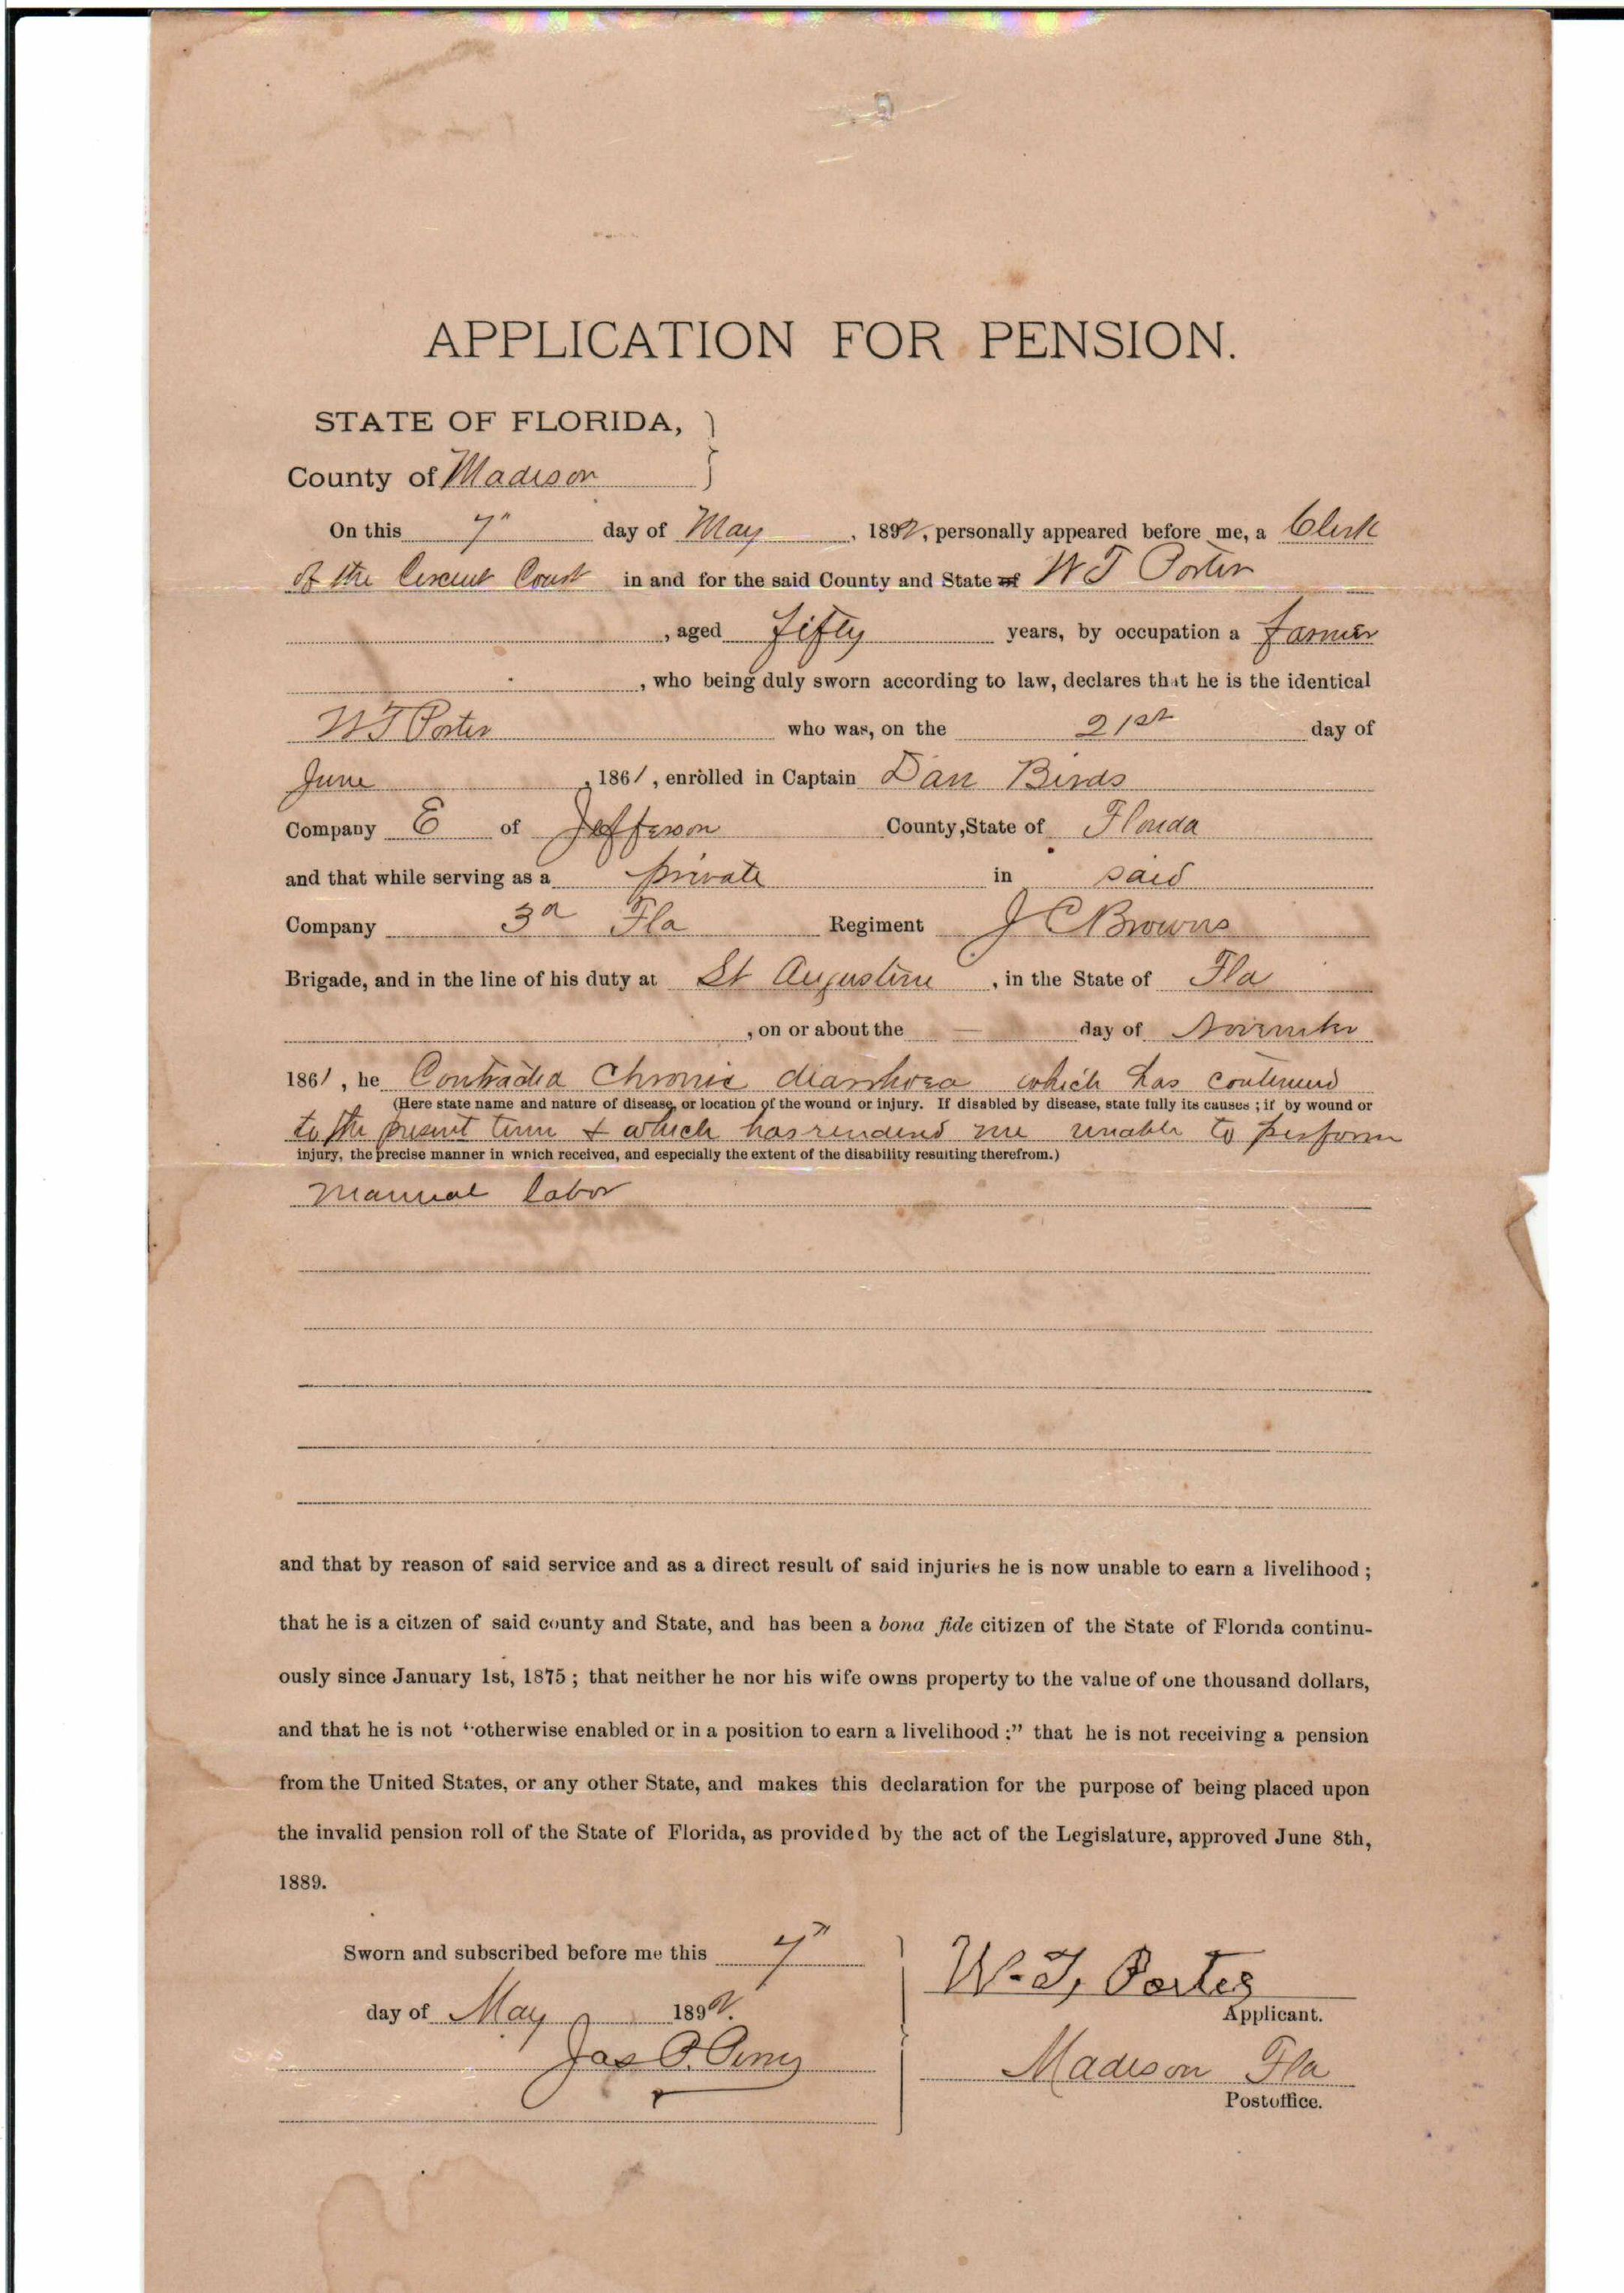 APPLICATION FOR PENSION.
STATE OF FLORIDA,
County of Madison
On this 7" day of May, 1892, personally appeared before me, a Clerk
of the Circuit Court in and for the said County and State of W T Porter
, aged fifty years, by occupation a farmer
, who being duly sworn according to law, declares that he is the identical
W T Porter who was, on the 21st day of
June, 1861, enrolled in Captain Dan Birds
Company E of Jefferson County, State of Florida
and that while serving as a private in said
Company 3d Fla Regiment J C Browns
Brigade, and in the line of his duty at St Augustine, in the State of Fla
, on or about the — day of November
1861, he Contracted Chronic diarrhoea which has continued
(Here state name and nature of disease, or location of the wound or injury. If disabled by disease, state fully its causes ; if by wound or
to the present time & which has rendered me unable to perform
injury, the precise manner in which received, and especially the extent of the disability resulting therefrom.)
manual labor
and that by reason of said service and as a direct result of said injuries he is now unable to earn a livelihood ;
that he is a citzen of said county and State, and has been a bona fide citizen of the State of Florida continu-
ously since January 1st, 1875 ; that neither he nor his wife owns property to the value of one thousand dollars,
and that he is not "otherwise enabled or in a position to earn a livelihood :" that he is not receiving a pension
from the United States, or any other State, and makes this declaration for the purpose of being placed upon
the invalid pension roll of the State of Florida, as provided by the act of the Legislature, approved June 8th,
1889.
Sworn and subscribed before me this 7"
day of May 1892.
Jas P. Perry
W. T, Porter
Applicant.
Madison Fla
Postoffice.